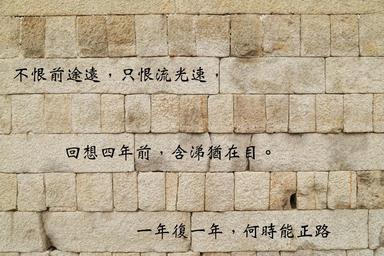 不恨前途遠，只恨流光速，
回想四年前，含涕猶在目。
一年復一年，何時能正路